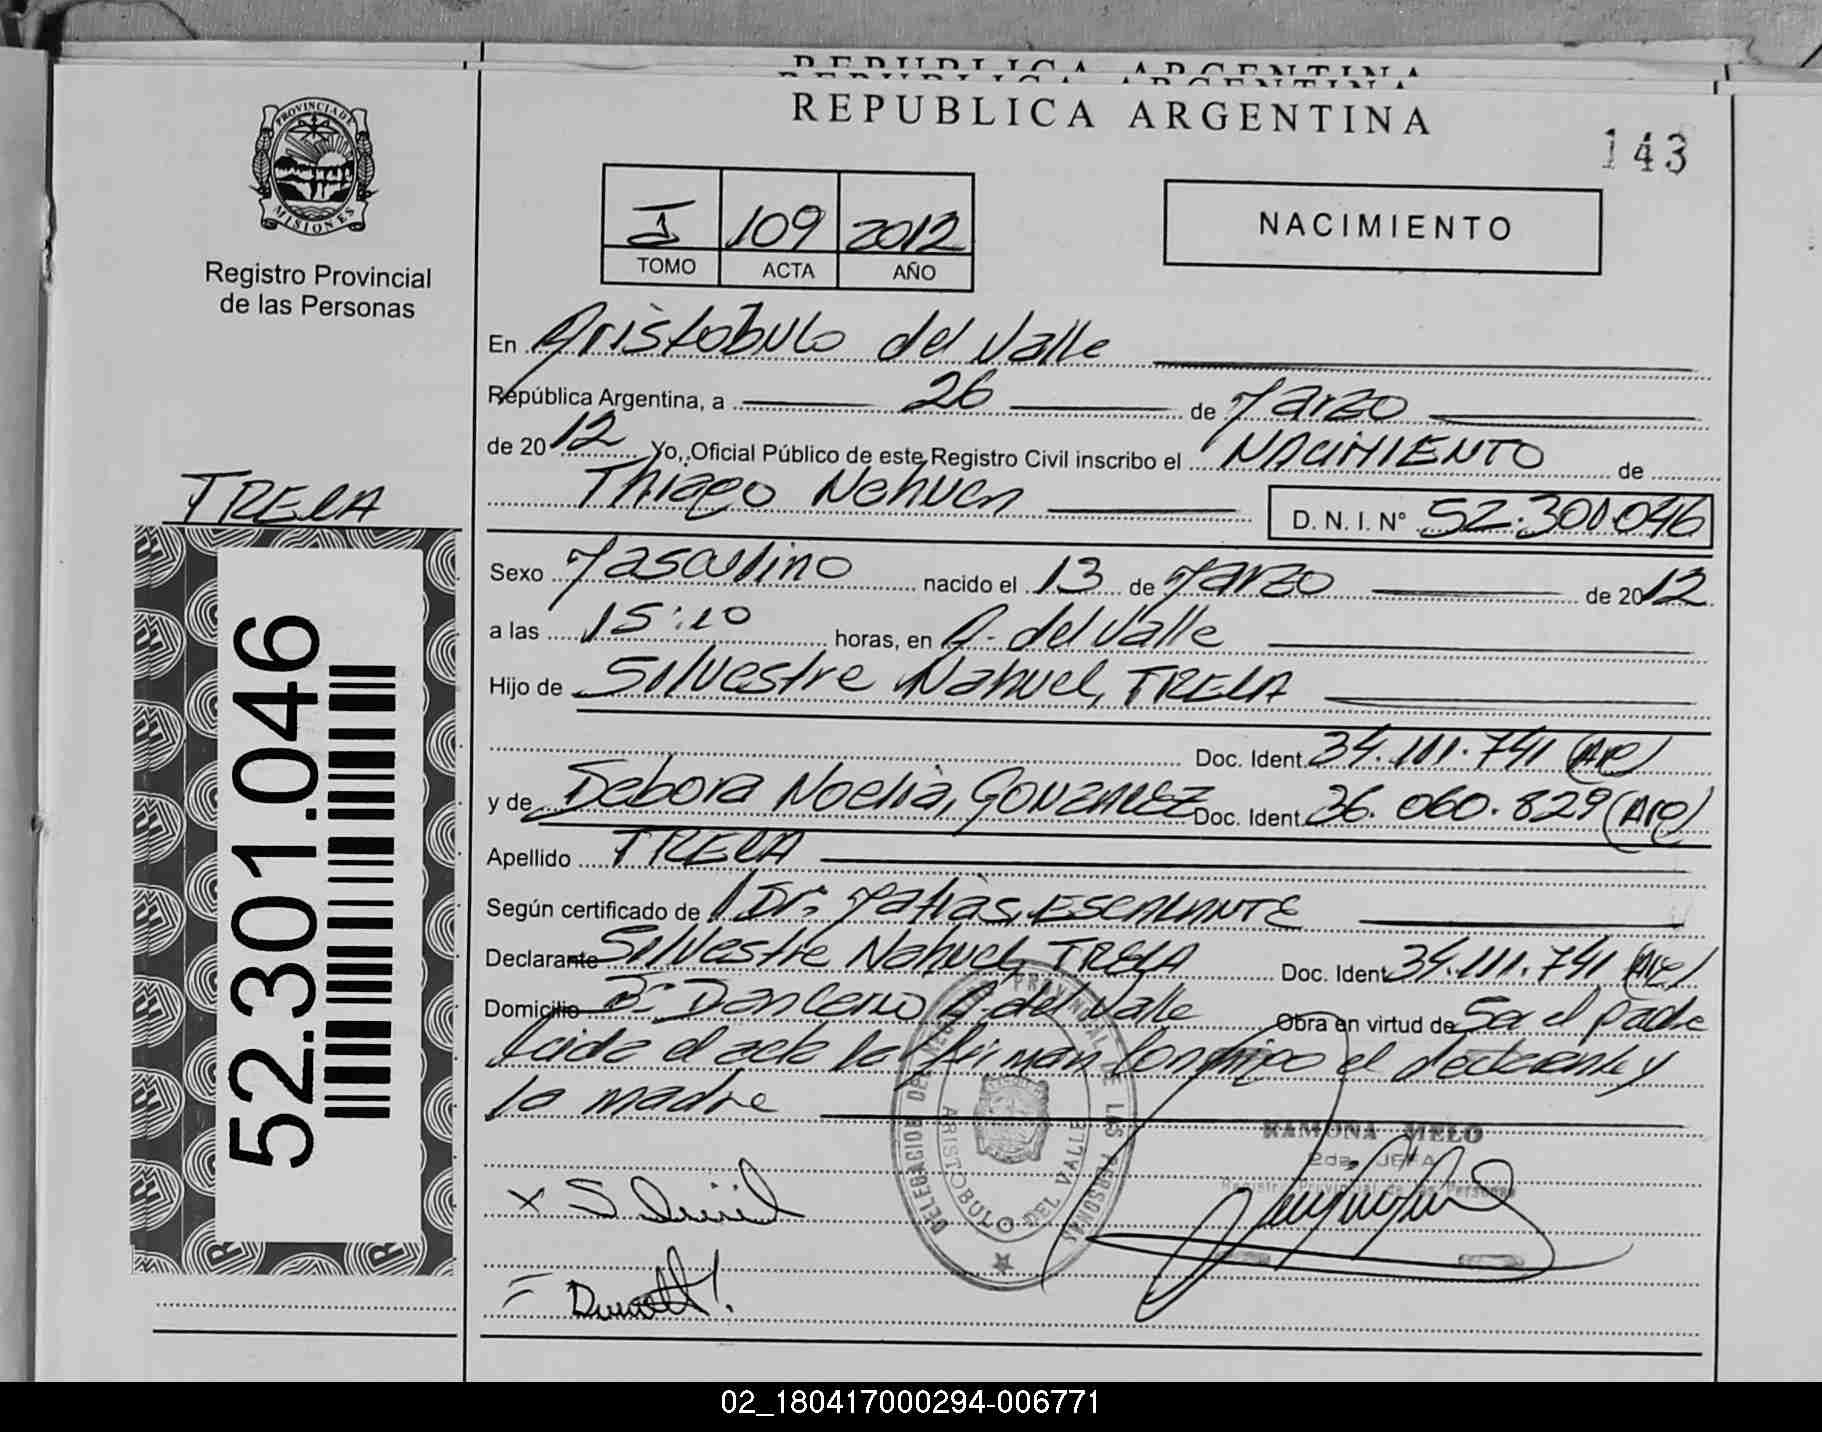 REPUBLICA ARGENTINA
REPUBLICA ARGENTINA
REPUBLICA ARGENTINA
143
PROVINCIA DE
MISIONES
Registro Provincial
de las Personas
I 109 2012
TOMO ACTA AÑO
NACIMIENTO
En Aristobulo del Valle
República Argentina, a 26 de Marzo
de 2012 Yo, Oficial Público de este Registro Civil inscribo el NACIMIENTO de
Thiago Nehuen D. N. I. N° 52.301.046
TRELA
52.301.046
Sexo Masculino nacido el 13 de Marzo de 2012
a las 15:10 horas, en A. del Valle
Hijo de Silvestre Nahuel, TRELA
Doc. Ident. 34.111.741 (Arg)
y de Debora Noelia, GONZALEZ Doc. Ident. 36.060.829 (Arg)
Apellido TRELA
Según certificado de Dr. Matias, ESCALANTE
Declarante Silvestre Nahuel, TRELA Doc. Ident. 34.111.741 (Arg)
Domicilio A. del Valle Obra en virtud de Ser el padre
Leida el acta la firman conmigo el declarante y
la madre
DELEGACION DEL REGISTRO PROVINCIAL DE LAS PERSONAS
ARISTOBULO DEL VALLE
RAMONA MELO
2da. JEFA
Registro Provincial de las Personas
02_180417000294-006771